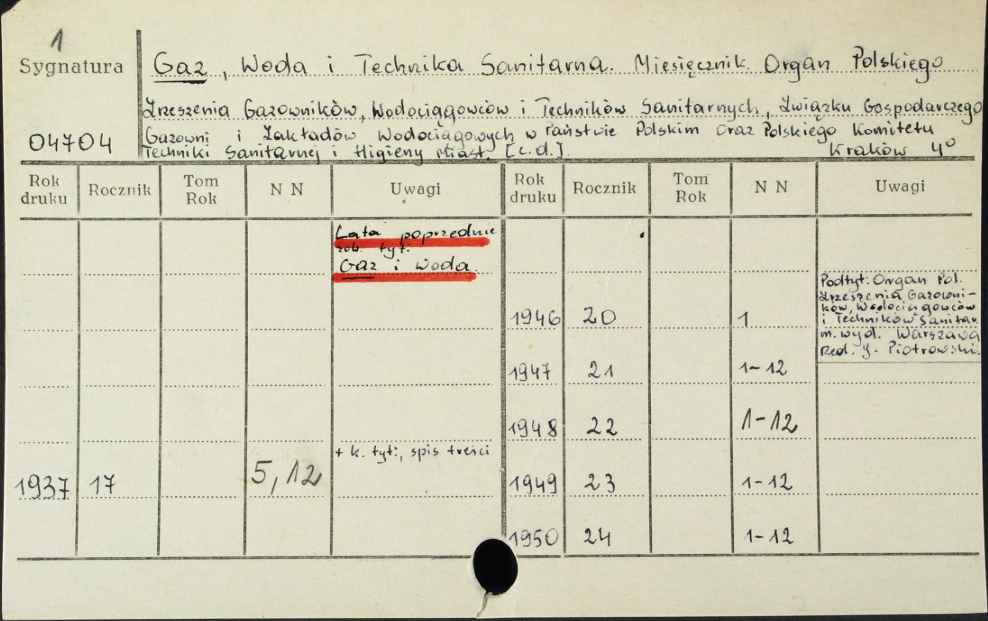 1
Sygnatura
Gaz, Woda i Technika Sanitarna. Miesięcznik. Organ Polskiego
Zrzeszenia Gazowników, Wodociągowców i Techników Sanitarnych, Związku Gospodarczego
04704
Gazowni i Zakładów Wodociągowych w Państwie Polskim oraz Polskiego Komitetu
Techniki Sanitarnej i Higieny Miast. [c.d.] Kraków 4°
Rok druku Rocznik Tom Rok N N Uwagi Rok druku Rocznik Tom Rok N N Uwagi
Lata poprzednie
zob. tyt.
Gaz i Woda.
Podtyt: Organ Pol.
Zrzeszenia Gazowni-
ków, Wodociągowców
i Techników Sanitar.
m. wyd. Warszawa
Red. J. Piotrowski.
1946 20 1
1947 21 1-12
1948 22 1-12
+ k. tyt:, spis treści
1937 17 5, 12 1949 23 1-12
1950 24 1-12